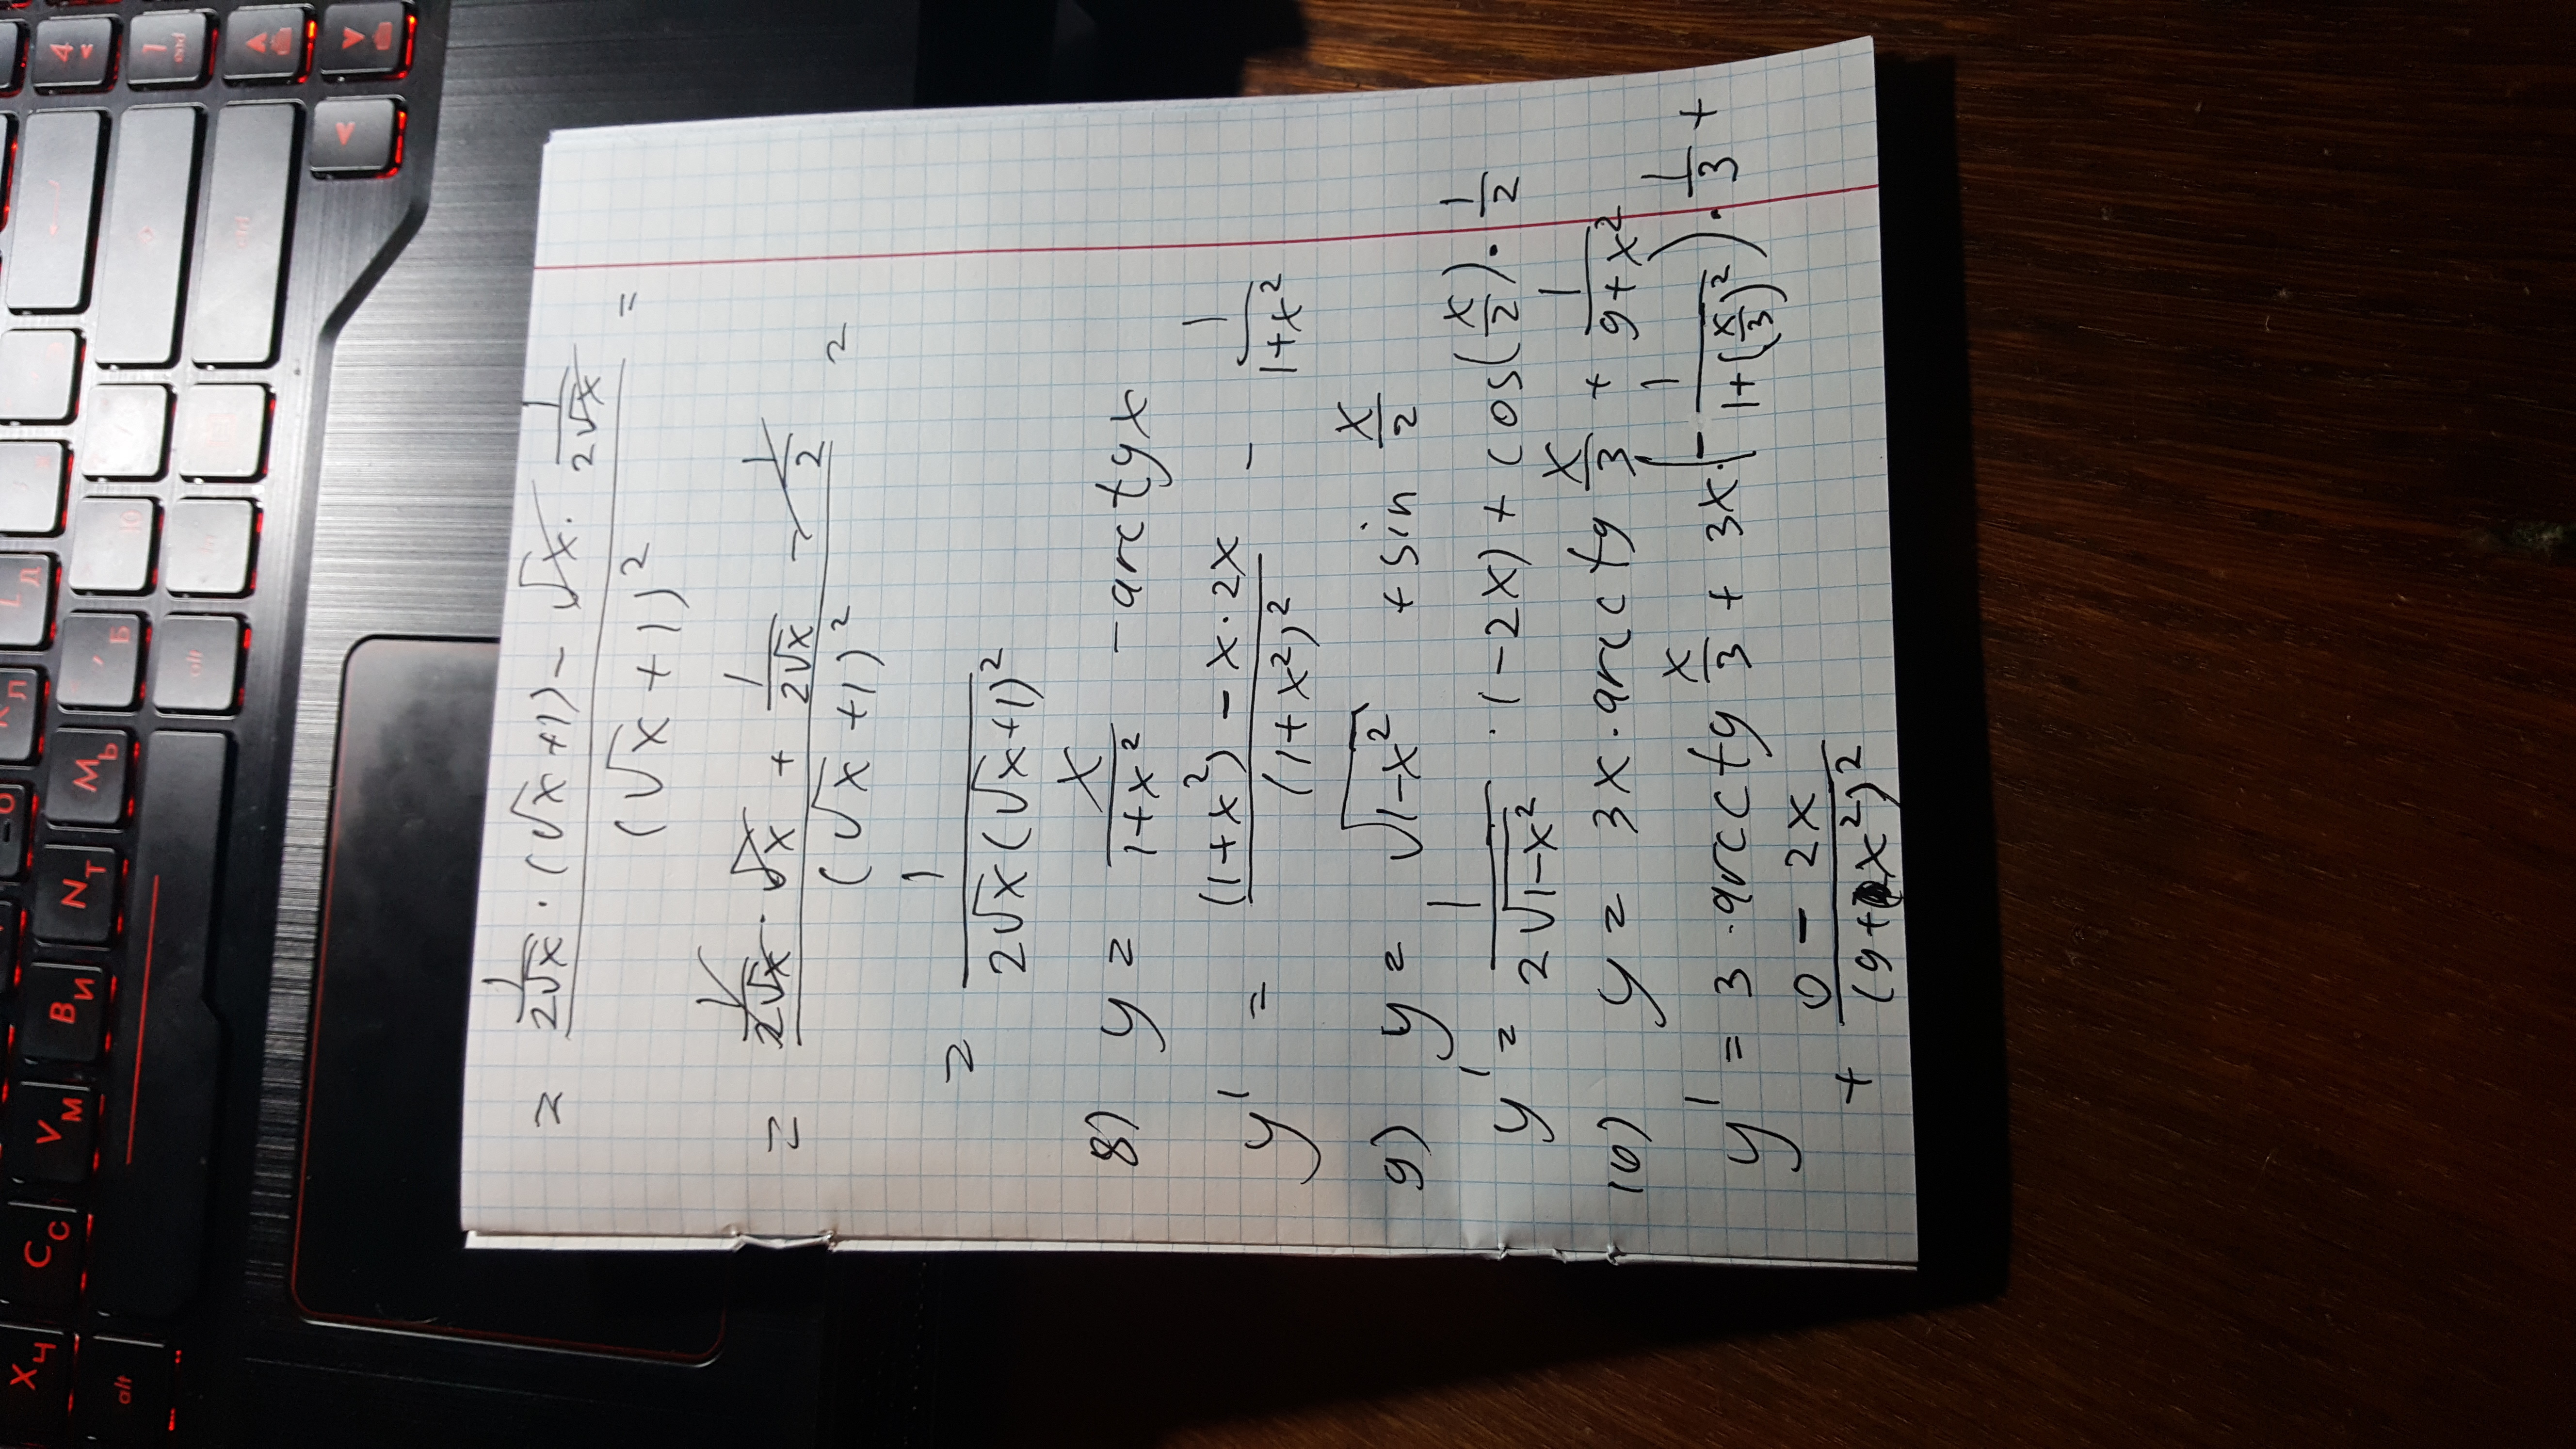 = 1/(2√x) · (√x + 1) - √x · 1/(2√x) / (√x + 1)² =
= 1/(2√x) · √x + 1/(2√x) - 1/2 / (√x + 1)² =
= 1 / (2√x(√x+1)²)
8) y = x/(1+x²) - arctg x
y' = ((1+x²) - x·2x)/(1+x²)² - 1/(1+x²)
9) y = √(1-x²) + sin x/2
y' = 1/(2√(1-x²)) · (-2x) + cos(x/2) · 1/2
10) y = 3x · arcctg x/3 + 1/(9+x²)
y' = 3 · arcctg x/3 + 3x · (- 1/(1+(x/3)²)) · 1/3 +
+ (0 - 2x)/(9+x²)²
4
1 end
Л Д
Б
К Л
Ю
alt
M Ь
N Т
B И
V М
C С
X Ч
alt